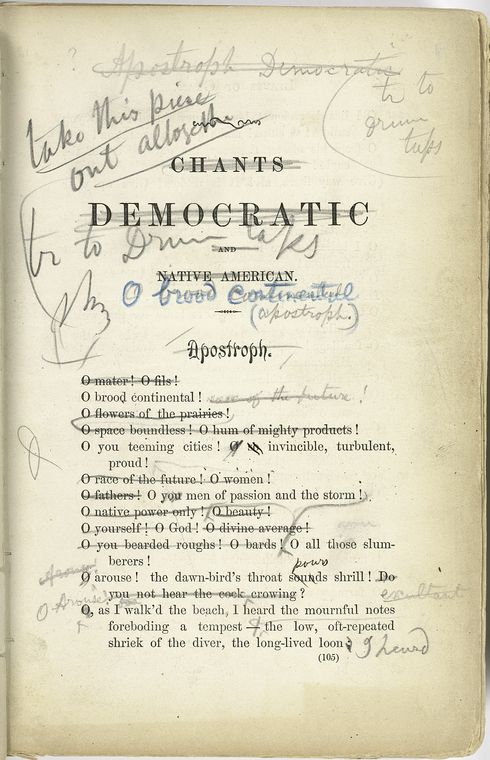 ? Apostroph Democratic
tr to
drum
taps
take this piece
out altogether
CHANTS
DEMOCRATIC
tr to Drum taps
AND
NATIVE AMERICAN.
O brood continental
(apostroph.)
Apostroph.
O mater! O fils!
O brood continental! race of the future!
O flowers of the prairies!
O space boundless! O hum of mighty products!
O you teeming cities! O invincible, turbulent,
proud!
O race of the future! O women!
O fathers! O you men of passion and the storm!
O native power only! O beauty!
O yourself! O God! O divine average!
O you bearded roughs! O bards! O all those slum-
berers!
pours
O arouse! the dawn-bird's throat sounds shrill! Do
Arouse!
you not hear the cock crowing?
exultant
O Arouse!
O, as I walk'd the beach, I heard the mournful notes
foreboding a tempest — the low, oft-repeated
shriek of the diver, the long-lived loon; I heard
(105)